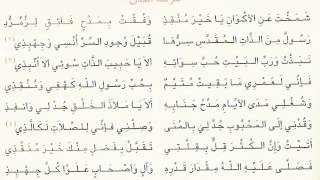 شَمَخْتُ عَنِ الأَكْوَانِ يَا خَيْرَ مُنْقِذِ وَفُقْتُ بِمَدْحٍ فَائِقٍ لِزُمُرُّدِ
رَسُولٌ مِنَ الذَّاتِ المُقَدَّسِ سِرُّهَا قُبَيْلَ وُجُودِ السِّرِّ أُنْسِي وَجَهْبَذِي
نَبَذْتُ وَرَبِّ البَيْتِ حُبَّ سِوَائِهِ أَلاَ يَا حَبِيبَ الذَّاتِ سُولِي أَلاَ انْبِذِ
فَإِنِّي لَعَمْرِي مَا بَقِيتُ مُتَيَّمٌ بِحُبِّ رَسُولِ اللهِ كَهْفِي وَمُنْقِذِي
وَشُغْلِي مَدَى الأَيَّامِ مَدْحُ جَنَابِهِ أَلاَ يَا مَلاَذَ الخَلْقِ جُدْ لِي وَأَنْفِذِ
وَقُدْنِي إِلَى المَحْبُوبِ جُدْ لِي بِالمُنَى وَصِلْنِي فَإِنِّي لِلصِّلاَتِ لَكَالَّذِي
أَتَيْتُ وَإِنَّ الكُثْرَ قُلٌّ بِقِلَّتِي تَقَبَّلْ بِفَضْلٍ مِنْكَ خَيْرَ مُنَقِّذِي
فَصَلَّى عَلَيْهِ اللهُ مِقْدَارَ قَدْرِهِ وَآلٍ وَأَصْحَابٍ عَلَوْا كُلَّ جَهْبَذِ